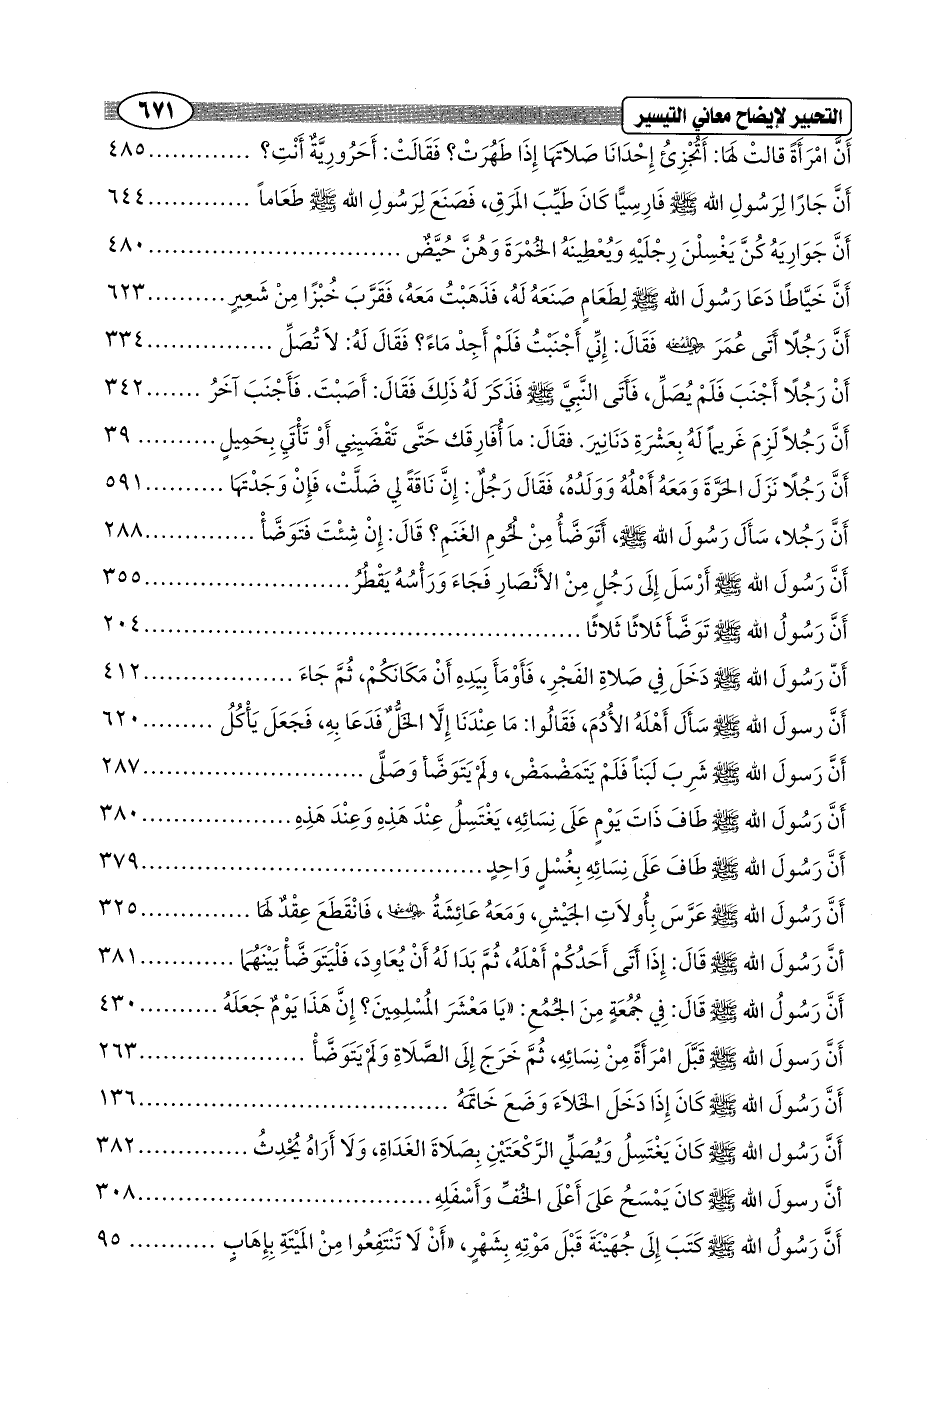 التحبير لإيضاح معاني التيسير ٦٧١
أَنَّ امْرَأَةً قالتْ لهَا: أَتُجْزِئُ إِحْدَانَا صَلاَتَهَا إِذَا طَهُرَتْ؟ فَقَالَتْ: أَحَرُورِيَّةٌ أَنْتِ؟ ............. ٤٨٥
أَنَّ جَارًا لِرَسُولِ الله ﷺ فَارِسِيًّا كَانَ طَيِّبَ المَرَقِ، فَصَنَعَ لِرَسُولِ الله ﷺ طَعَاماً ............. ٦٤٤
أَنَّ جَوَارِيَهُ كُنَّ يَغْسِلْنَ رِجْلَيْهِ وَيُعْطِينَهُ الخُمْرَةَ وَهُنَّ حُيَّضٌ ................................ ٤٨٠
أَنَّ خَيَّاطًا دَعَا رَسُولَ الله ﷺ لِطَعَامٍ صَنَعَهُ لَهُ، فَذَهَبْتُ مَعَهُ، فَقَرَّبَ خُبْزًا مِنْ شَعِيرٍ .......... ٦٢٣
أَنَّ رَجُلًا أَتَى عُمَرَ رضي الله عنه فَقَالَ: إِنِّي أَجْنَبْتُ فَلَمْ أَجِد مَاءً؟ فَقَالَ لَهُ: لاَ تُصَلِّ ................ ٣٣٤
أَنْ رَجُلًا أَجْنَبَ فَلَمْ يُصَلِّ، فَأَتَى النَّبِيَّ ﷺ فَذَكَرَ لَهُ ذَلِكَ فَقَالَ: أَصَبْتَ. فَأَجْنَبَ آخَرُ ....... ٣٤٢
أَنَّ رَجُلاً لَزِمَ غَرِيماً لَهُ بِعَشْرَةِ دَنَانِيرَ. فقَالَ: ماَ أُفَارِقك حَتَّى تَقْضِينِي أَوْ تَأْتِيَ بِحَمِيلٍ .......... ٣٩
أَنَّ رَجُلًا نَزَلَ الحَرَّةَ وَمَعَهُ أَهْلُهُ وَوَلَدُهُ، فَقَالَ رَجُلٌ: إِنَّ نَاقَةً لِي ضَلَّتْ، فَإِنْ وَجَدْتَهَا .......... ٥٩١
أَنَّ رَجُلا، سَأَلَ رَسُولَ الله ﷺ، أَتَوَضَّأُ مِنْ لُحُومِ الغَنَمِ؟ قَالَ: إِنْ شِئْتَ فَتَوَضَّأْ .............. ٢٨٨
أَنَّ رَسُولَ الله ﷺ أَرْسَلَ إِلَى رَجُلٍ مِنْ الأَنْصَارِ فَجَاءَ وَرَأْسُهُ يَقْطُرُ .......................... ٣٥٥
أَنَّ رَسُولُ الله ﷺ تَوَضَّأَ ثَلاثًا ثَلاثًا ........................................................ ٢٠٤
أَنّ رَسُولَ الله ﷺ دَخَلَ فِي صَلاةِ الفَجْرِ، فَأَوْمَأَ بِيَدِهِ أَنْ مَكَانَكُمْ، ثُمَّ جَاءَ ................... ٤١٢
أَنَّ رسولَ الله ﷺ سَأَلَ أَهْلَهُ الأُدُمَ، فَقَالُوا: مَا عِنْدَنَا إِلَّا الخَلُّ فَدَعَا بِهِ، فَجَعَلَ يَأْكُلُ ......... ٦٢٠
أَنَّ رَسولَ الله ﷺ شَرِبَ لَبَناً فَلَمْ يَتَمَضْمَضْ، ولَمْ يَتَوَضَّأ وَصَلَّى ............................ ٢٨٧
أَنَّ رَسُولَ الله ﷺ طَافَ ذَاتَ يَوْمٍ عَلَى نِسَائِهِ، يَغْتَسِلُ عِنْدَ هَذِهِ وَعِنْدَ هَذِهِ ................... ٣٨٠
أَنَّ رَسُولَ الله ﷺ طَافَ عَلَى نِسَائِهِ بِغُسْلٍ وَاحِدٍ ........................................... ٣٧٩
أَنَّ رَسُولَ الله ﷺ عَرَّسَ بِأُولاَتِ الجَيْشِ، وَمَعَهُ عَائِشَةُ رضي الله عنها، فَانْقَطَعَ عِقْدٌ لهَا .............. ٣٢٥
أنَّ رَسُولَ الله ﷺ قَالَ: إِذَا أَتَى أَحَدُكُمْ أَهْلَهُ، ثُمَّ بَدَا لَهُ أَنْ يُعَاوِدَ، فَلْيَتَوَضَّأْ بَيْنَهُمَا ............ ٣٨١
أَنَّ رَسُولُ الله ﷺ قَالَ: فِي جُمُعَةٍ مِنَ الجُمُعِ: «يَا مَعْشَرَ المُسْلِمِينَ؟ إِنَّ هَذَا يَوْمٌ جَعَلَهُ .......... ٤٣٠
أَنَّ رَسولَ الله ﷺ قَبَّلَ امْرَأَةً مِنْ نِسَائِهِ، ثُمَّ خَرَجَ إِلَى الصَّلَاةِ وَلَمْ يَتَوَضَّأْ ..................... ٢٦٣
أَنَّ رَسُولَ الله ﷺ كَانَ إِذَا دَخَلَ الخَلاَءَ وَضَعَ خَاتمَهُ ....................................... ١٣٦
أَنَّ رَسُول الله ﷺ كَانَ يَغْتَسِلُ وَيُصَلِّي الرَّكْعَتَيْنِ بِصَلَاةَ الغَدَاةِ، وَلَا أَرَاهُ يُحْدِثُ .............. ٣٨٢
أنَّ رسولَ الله ﷺ كانَ يَمْسَحُ عَلَى أَعْلَى الخُفِّ وَأَسْفَلِهِ ..................................... ٣٠٨
أَنَّ رَسُولُ الله ﷺ كَتَبَ إِلَى جُهَيْنَةَ قَبْلَ مَوْتِهِ بِشَهْرٍ، «أَنْ لَا تَنْتَفِعُوا مِنْ المَيْتَةِ بِإِهَابٍ ........... ٩٥